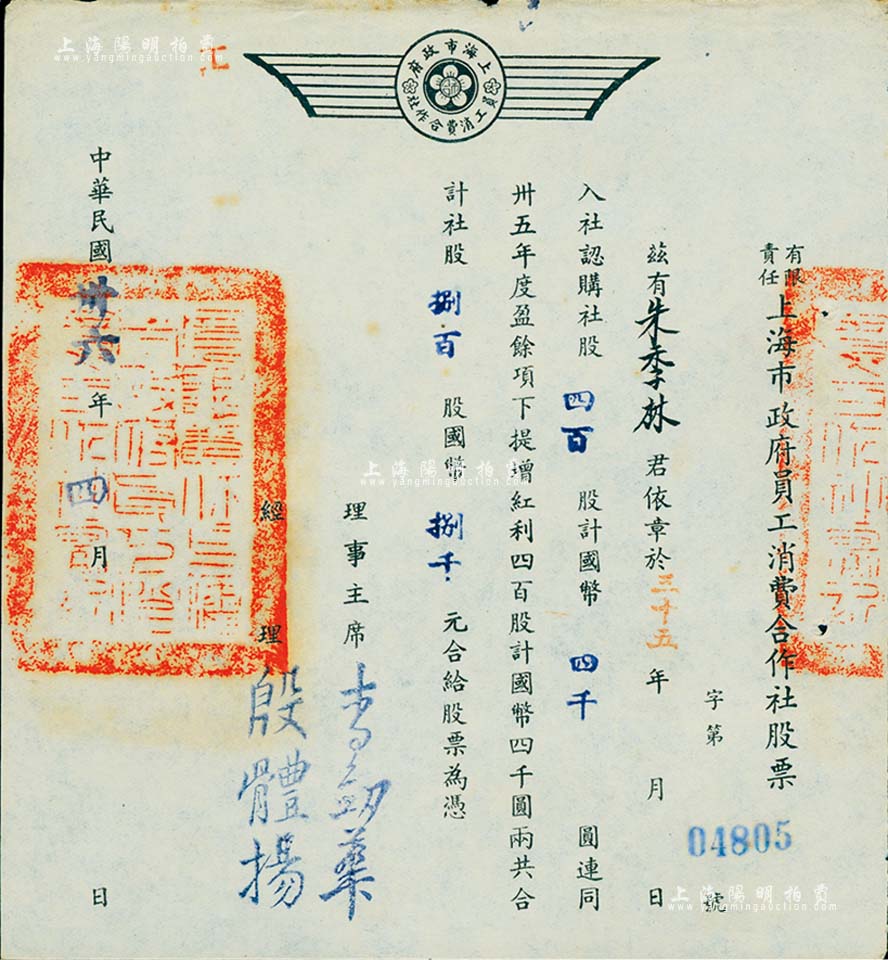 上海市政府
員工消費合作社
有限責任上海市政府員工消費合作社股票
字第 04805 號
茲有朱季林君依章於三十五年 月 日
入社認購社股四百股計國幣四千圓連同
卅五年度盈餘項下提增紅利四百股計國幣四千圓兩共合
計社股捌百股國幣捌千元合給股票為憑
理事主席
經理 殷體揚
中華民國卅六年四月 日
上海陽明拍賣
www.yangmingauction.com
上海陽明拍賣
www.yangmingauction.com
上海陽明拍賣
www.yangmingauction.com